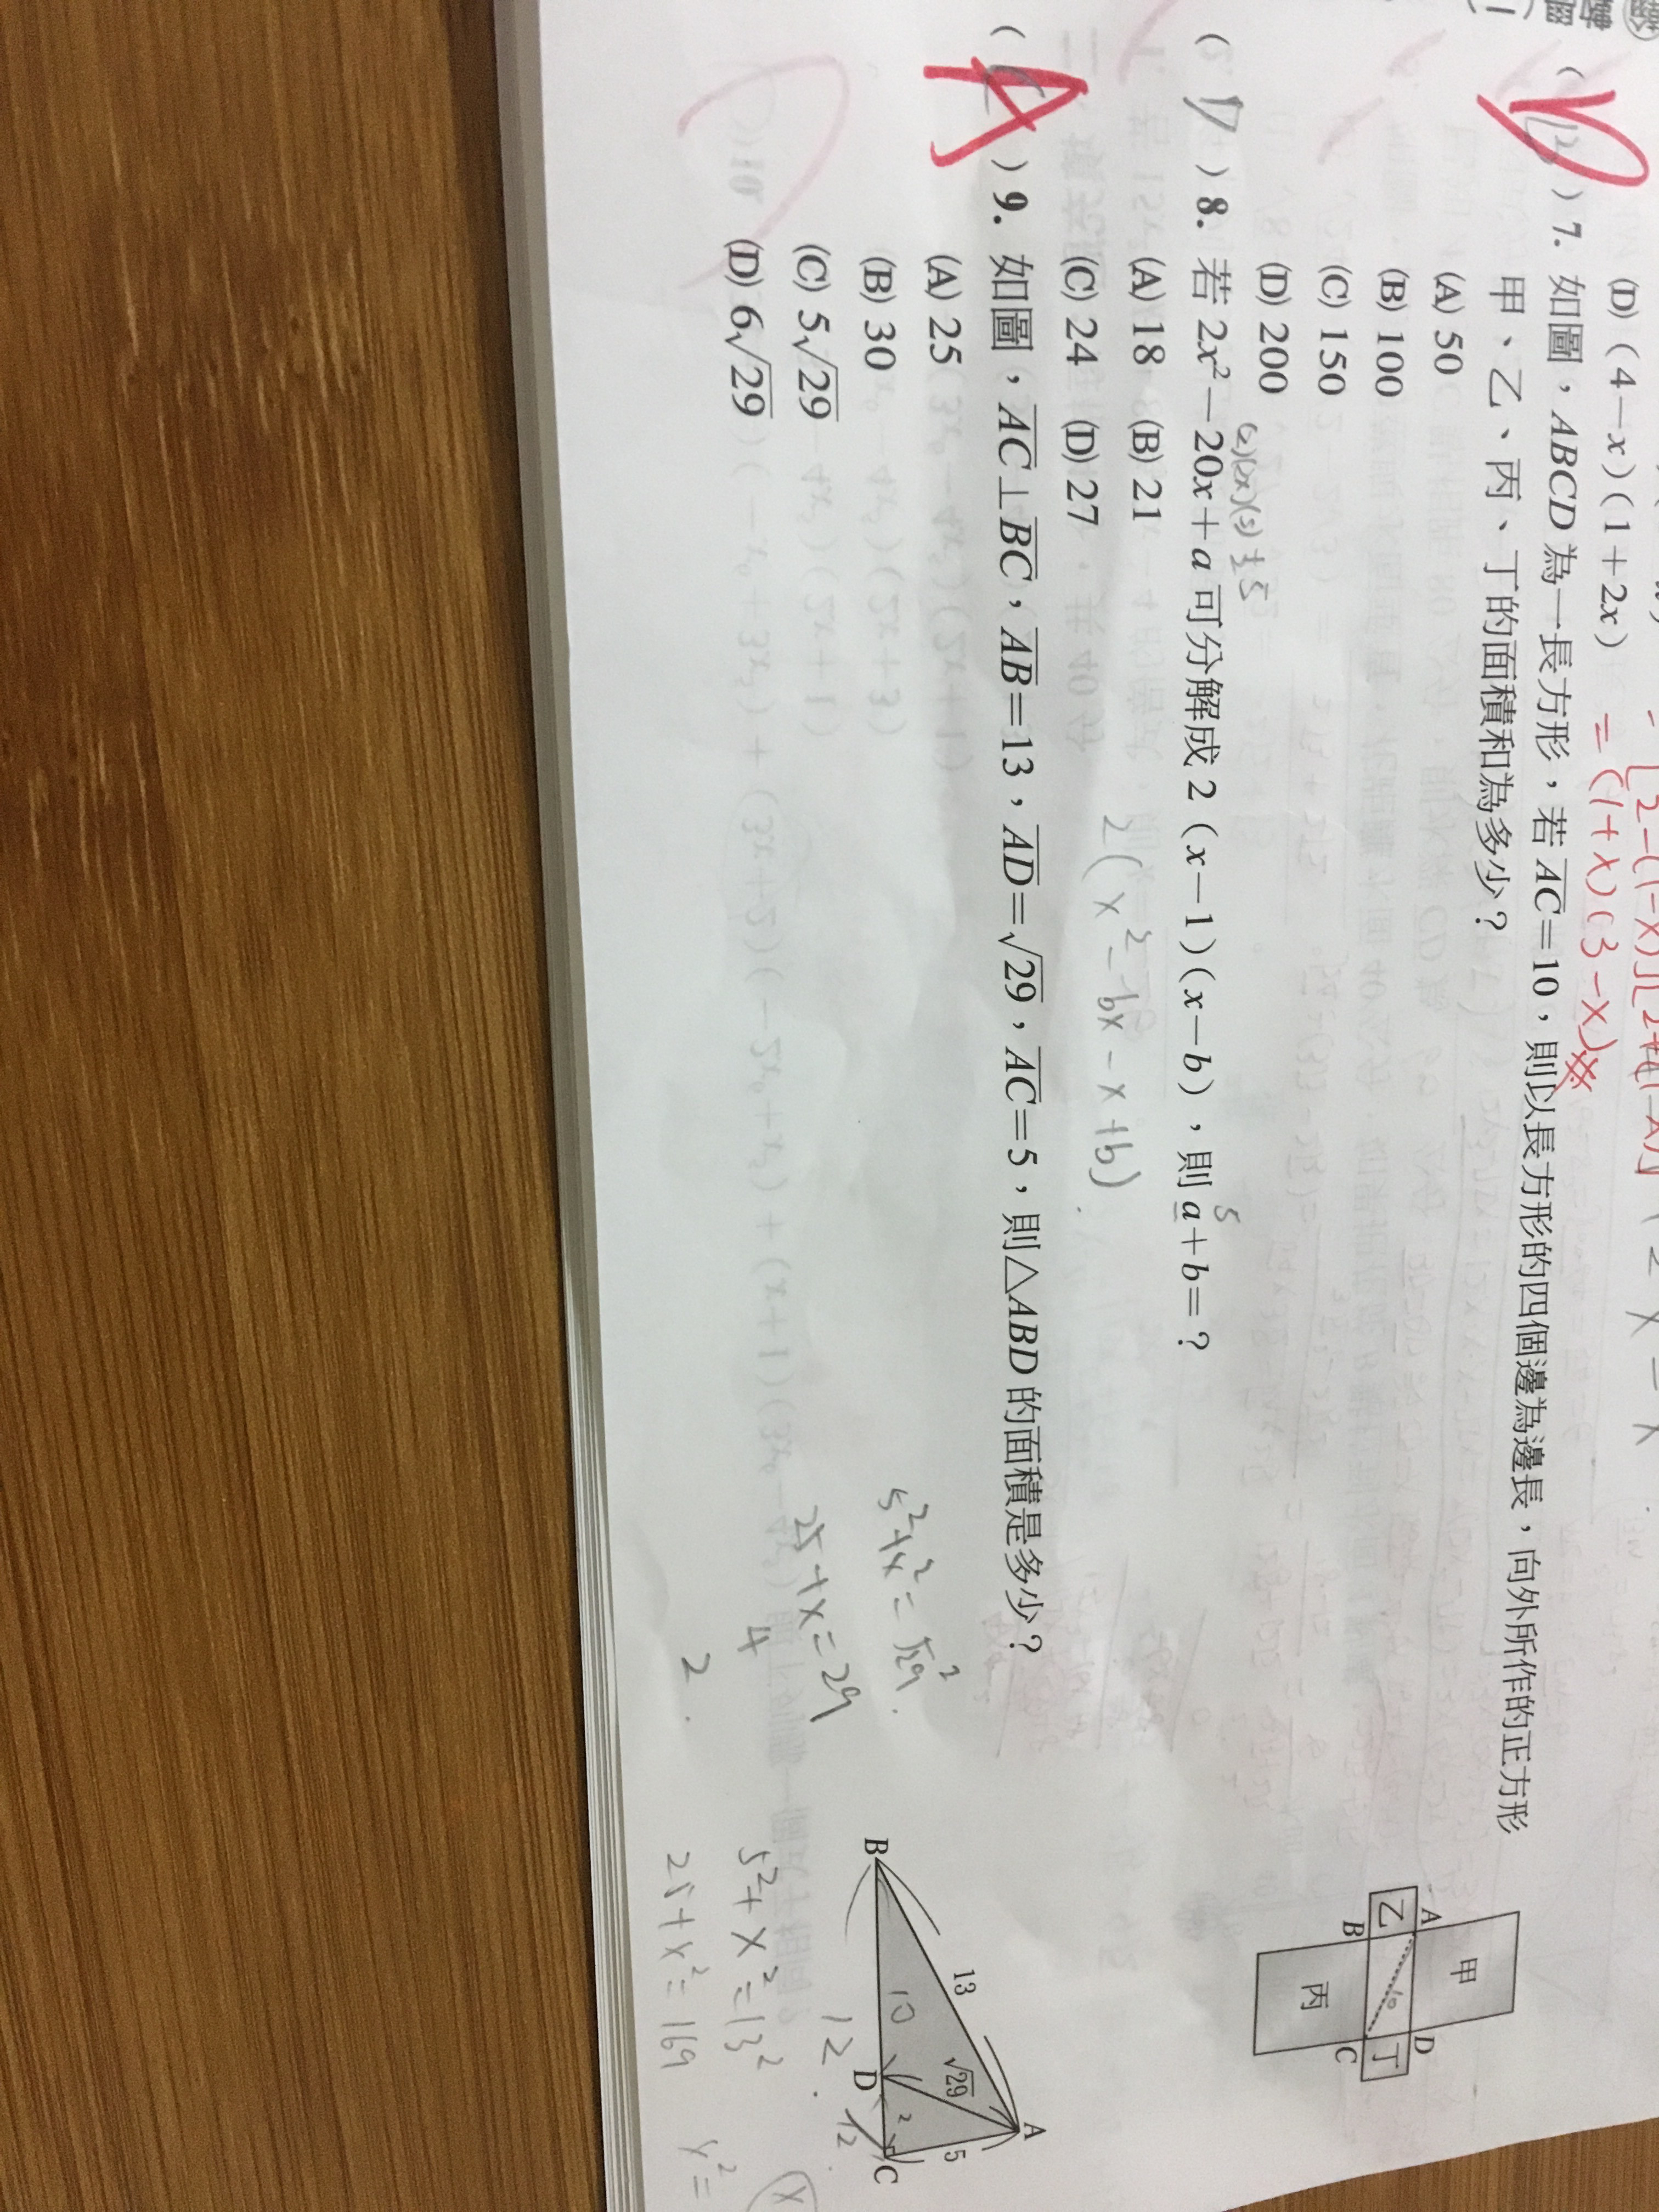 (D)(4－x)(1＋2x)
=(1+x)(3-x)
( D )7. 如圖，ABCD 為一長方形，若 AC＝10，則以長方形的四個邊為邊長，向外所作的正方形
甲、乙、丙、丁的面積和為多少？
(A) 50
(B) 100
(C) 150
(D) 200
甲
A
D
乙
10
丁
B
C
丙
( D )8. 若 2x²－20x＋a 可分解成 2(x－1)(x－b)，則 a＋b＝？
(A) 18 (B) 21
(C) 24 (D) 27
2(x²-bx-x+b)
( A )9. 如圖，AC⊥BC，AB＝13，AD＝√29，AC＝5，則△ABD 的面積是多少？
(A) 25
(B) 30
(C) 5√29
(D) 6√29
5²+x²=√29²
25+x=29
4
2
A
13
√29
5
10
2
B
D
C
12
12
5²+x²=13²
25+x²=169